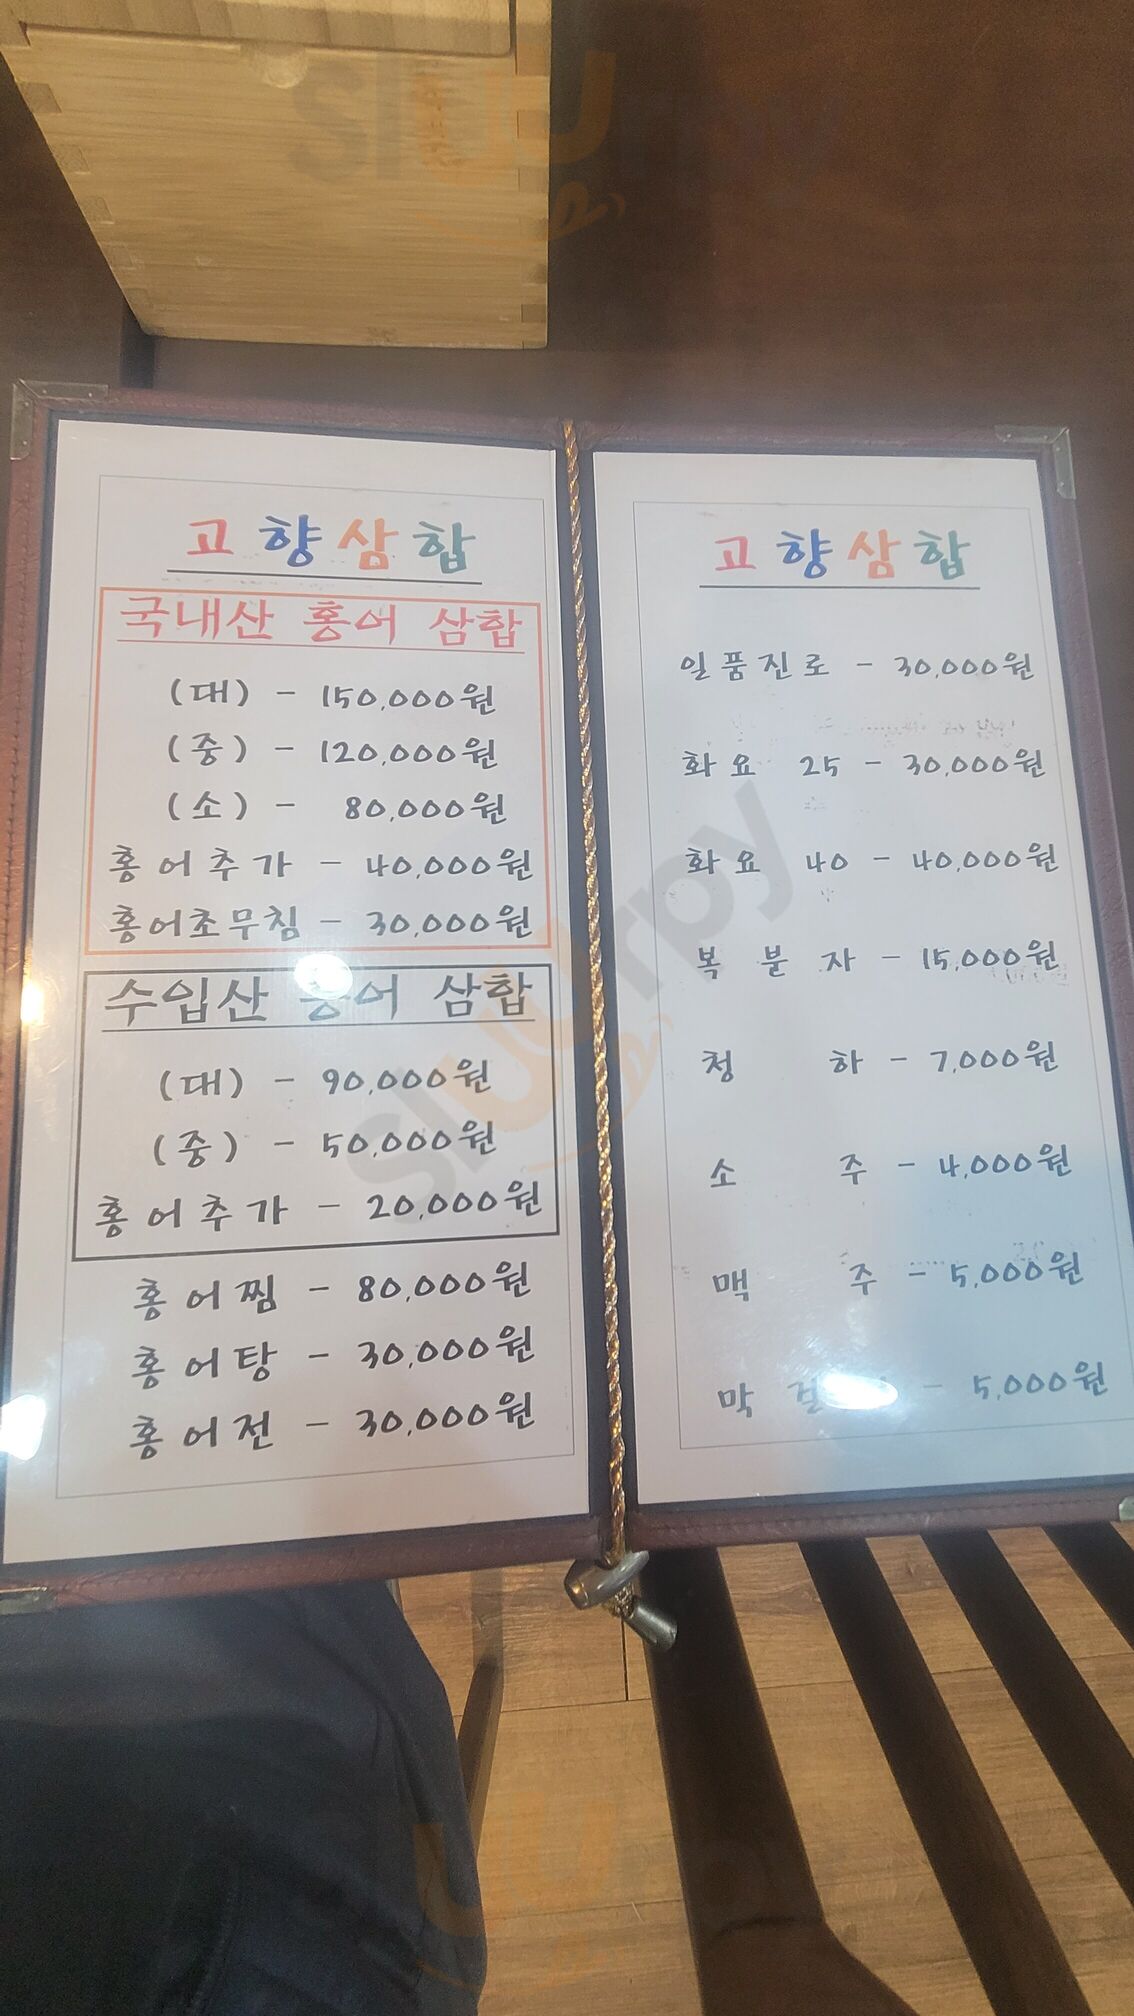 고향삼합
국내산 홍어 삼합
(대) - 150,000원
(중) - 120,000원
(소) - 80,000원
홍어추가 - 40,000원
홍어초무침 - 30,000원
수입산 홍어 삼합
(대) - 90,000원
(중) - 50,000원
홍어추가 - 20,000원
홍어찜 - 80,000원
홍어탕 - 30,000원
홍어전 - 30,000원
고향삼합
일품진로 - 30,000원
화요 25 - 30,000원
화요 40 - 40,000원
복분자 - 15,000원
청하 - 7,000원
소주 - 4,000원
맥주 - 5,000원
- 5,000원
sluurpy
sluurpy
sluurpy